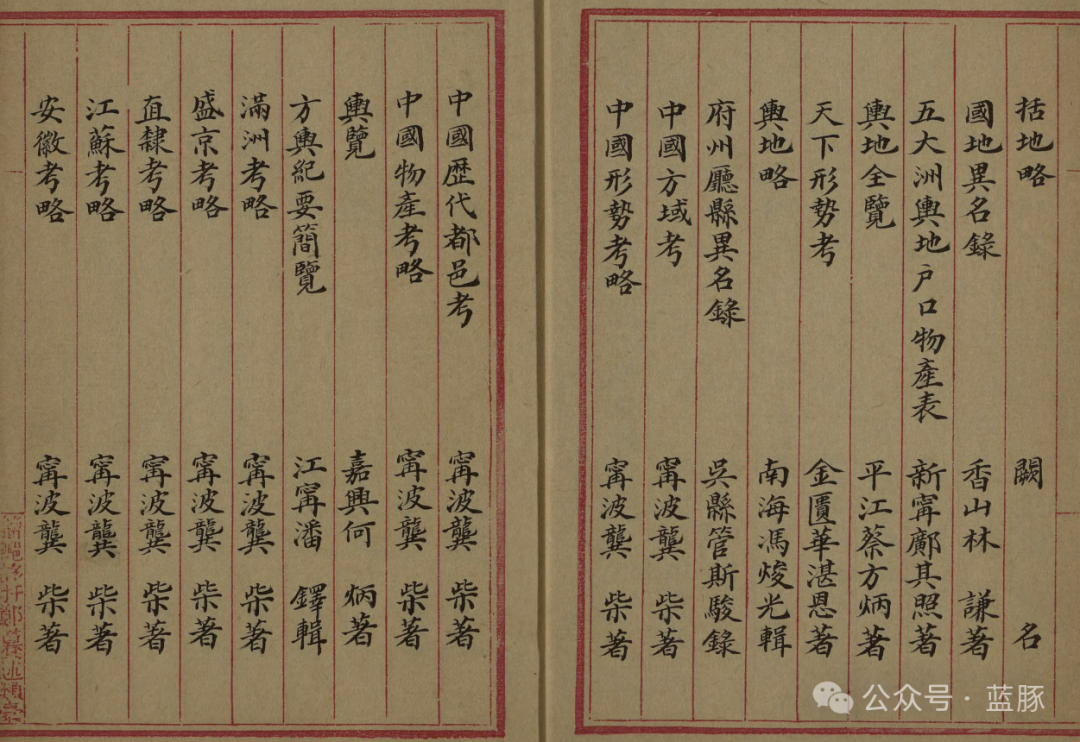 括地略 闕名
國地異名錄 香山林謙著
五大洲輿地戶口物產表 新甯鄺其照著
輿地全覽 平江蔡方炳著
天下形勢考 金匱華湛恩著
輿地略 南海馮焌光輯
府州廳縣異名錄 吳縣管斯駿錄
中國方域考 甯波龔柴著
中國形勢考略 甯波龔柴著
中國歷代都邑考 甯波龔柴著
中國物產考略 甯波龔柴著
輿覽 嘉興何炳著
方輿紀要簡覽 江甯潘鐸輯
滿洲考略 甯波龔柴著
盛京考略 甯波龔柴著
直隸考略 甯波龔柴著
江蘇考略 甯波龔柴著
安徽考略 甯波龔柴著
公众号·蓝豚